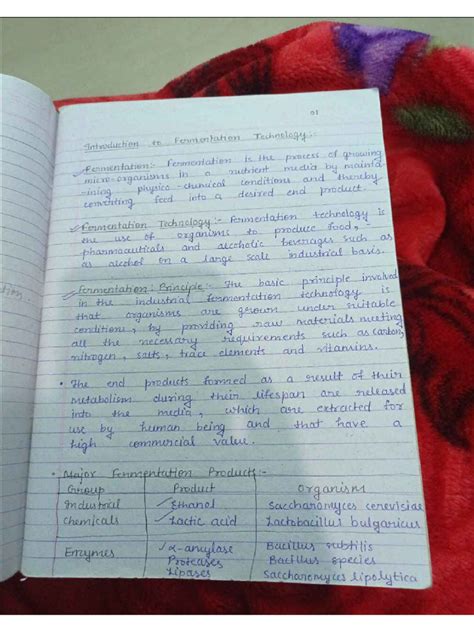 01
Introduction to Fermentation Technology:-
Fermentation:- Fermentation is the process of growing
micro-organisms in a nutrient media by mainta-
-ining physico-chemical conditions and thereby
converting feed into a desired end product.
Fermentation Technology:- Fermentation technology is
the use of organisms to produce food,
pharmaceuticals and alcoholic beverages such as
as alcohol on a large scale industrial basis.
Fermentation: Principle:- The basic principle involved
in the industrial fermentation technology is
that organisms are grown under suitable
conditions, by providing raw materials meeting
all the necessary requirements such as carbon,
nitrogen, salts, trace elements and vitamins.
• The end products formed as a result of their
metabolism during their lifespan are released
into the media, which are extracted for
use by human being and that have a
high commercial value.
• Major Fermentation Products:-
Group Product Organism
Industrial Ethanol Saccharomyces cerevisiae
Chemicals Lactic acid Lactobacillus bulgaricus
Enzymes α-amylase Bacillus subtilis
Proteases Bacillus species
Lipases Saccharomyces lipolytica